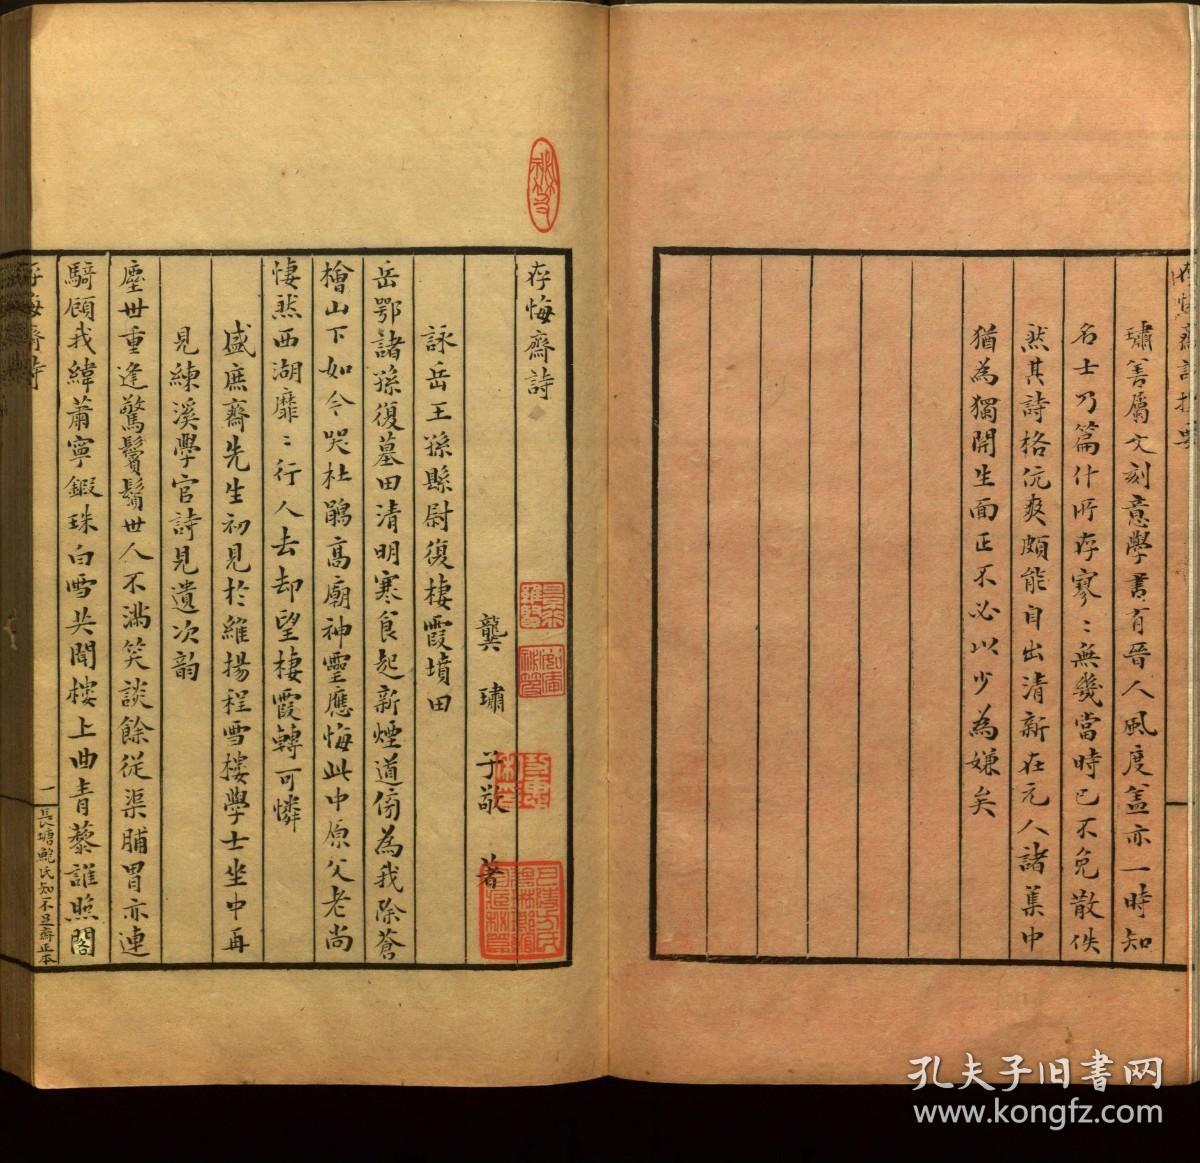 存悔齋詩提要
璛善屬文刻意學書有晉人風度盖亦一時知
名士乃篇什所存寥〻無幾當時已不免散佚
然其詩格伉爽頗能自出清新在元人諸集中
猶為獨開生面正不必以少為嫌矣
存悔齋詩
龔璛子敬著
詠岳王孫縣尉復棲霞墳田
岳鄂諸孫復墓田清明寒食起新煙道傍為我除蒼
檜山下如今哭杜鵑高廟神靈應悔此中原父老尚
悽然西湖靡〻行人去却望棲霞轉可憐
盛庶齋先生初見於維揚程雪樓學士坐中再
見練溪學官詩見遺次韵
塵世重逢驚鬢鬚世人不滿笑談餘従渠脯胃亦連
騎顧我緯蕭寧鍛珠白雪共聞樓上曲青藜誰照閣
存悔齋詩
一
長塘鮑氏知不足齋正本
孔夫子旧书网
www.kongfz.com